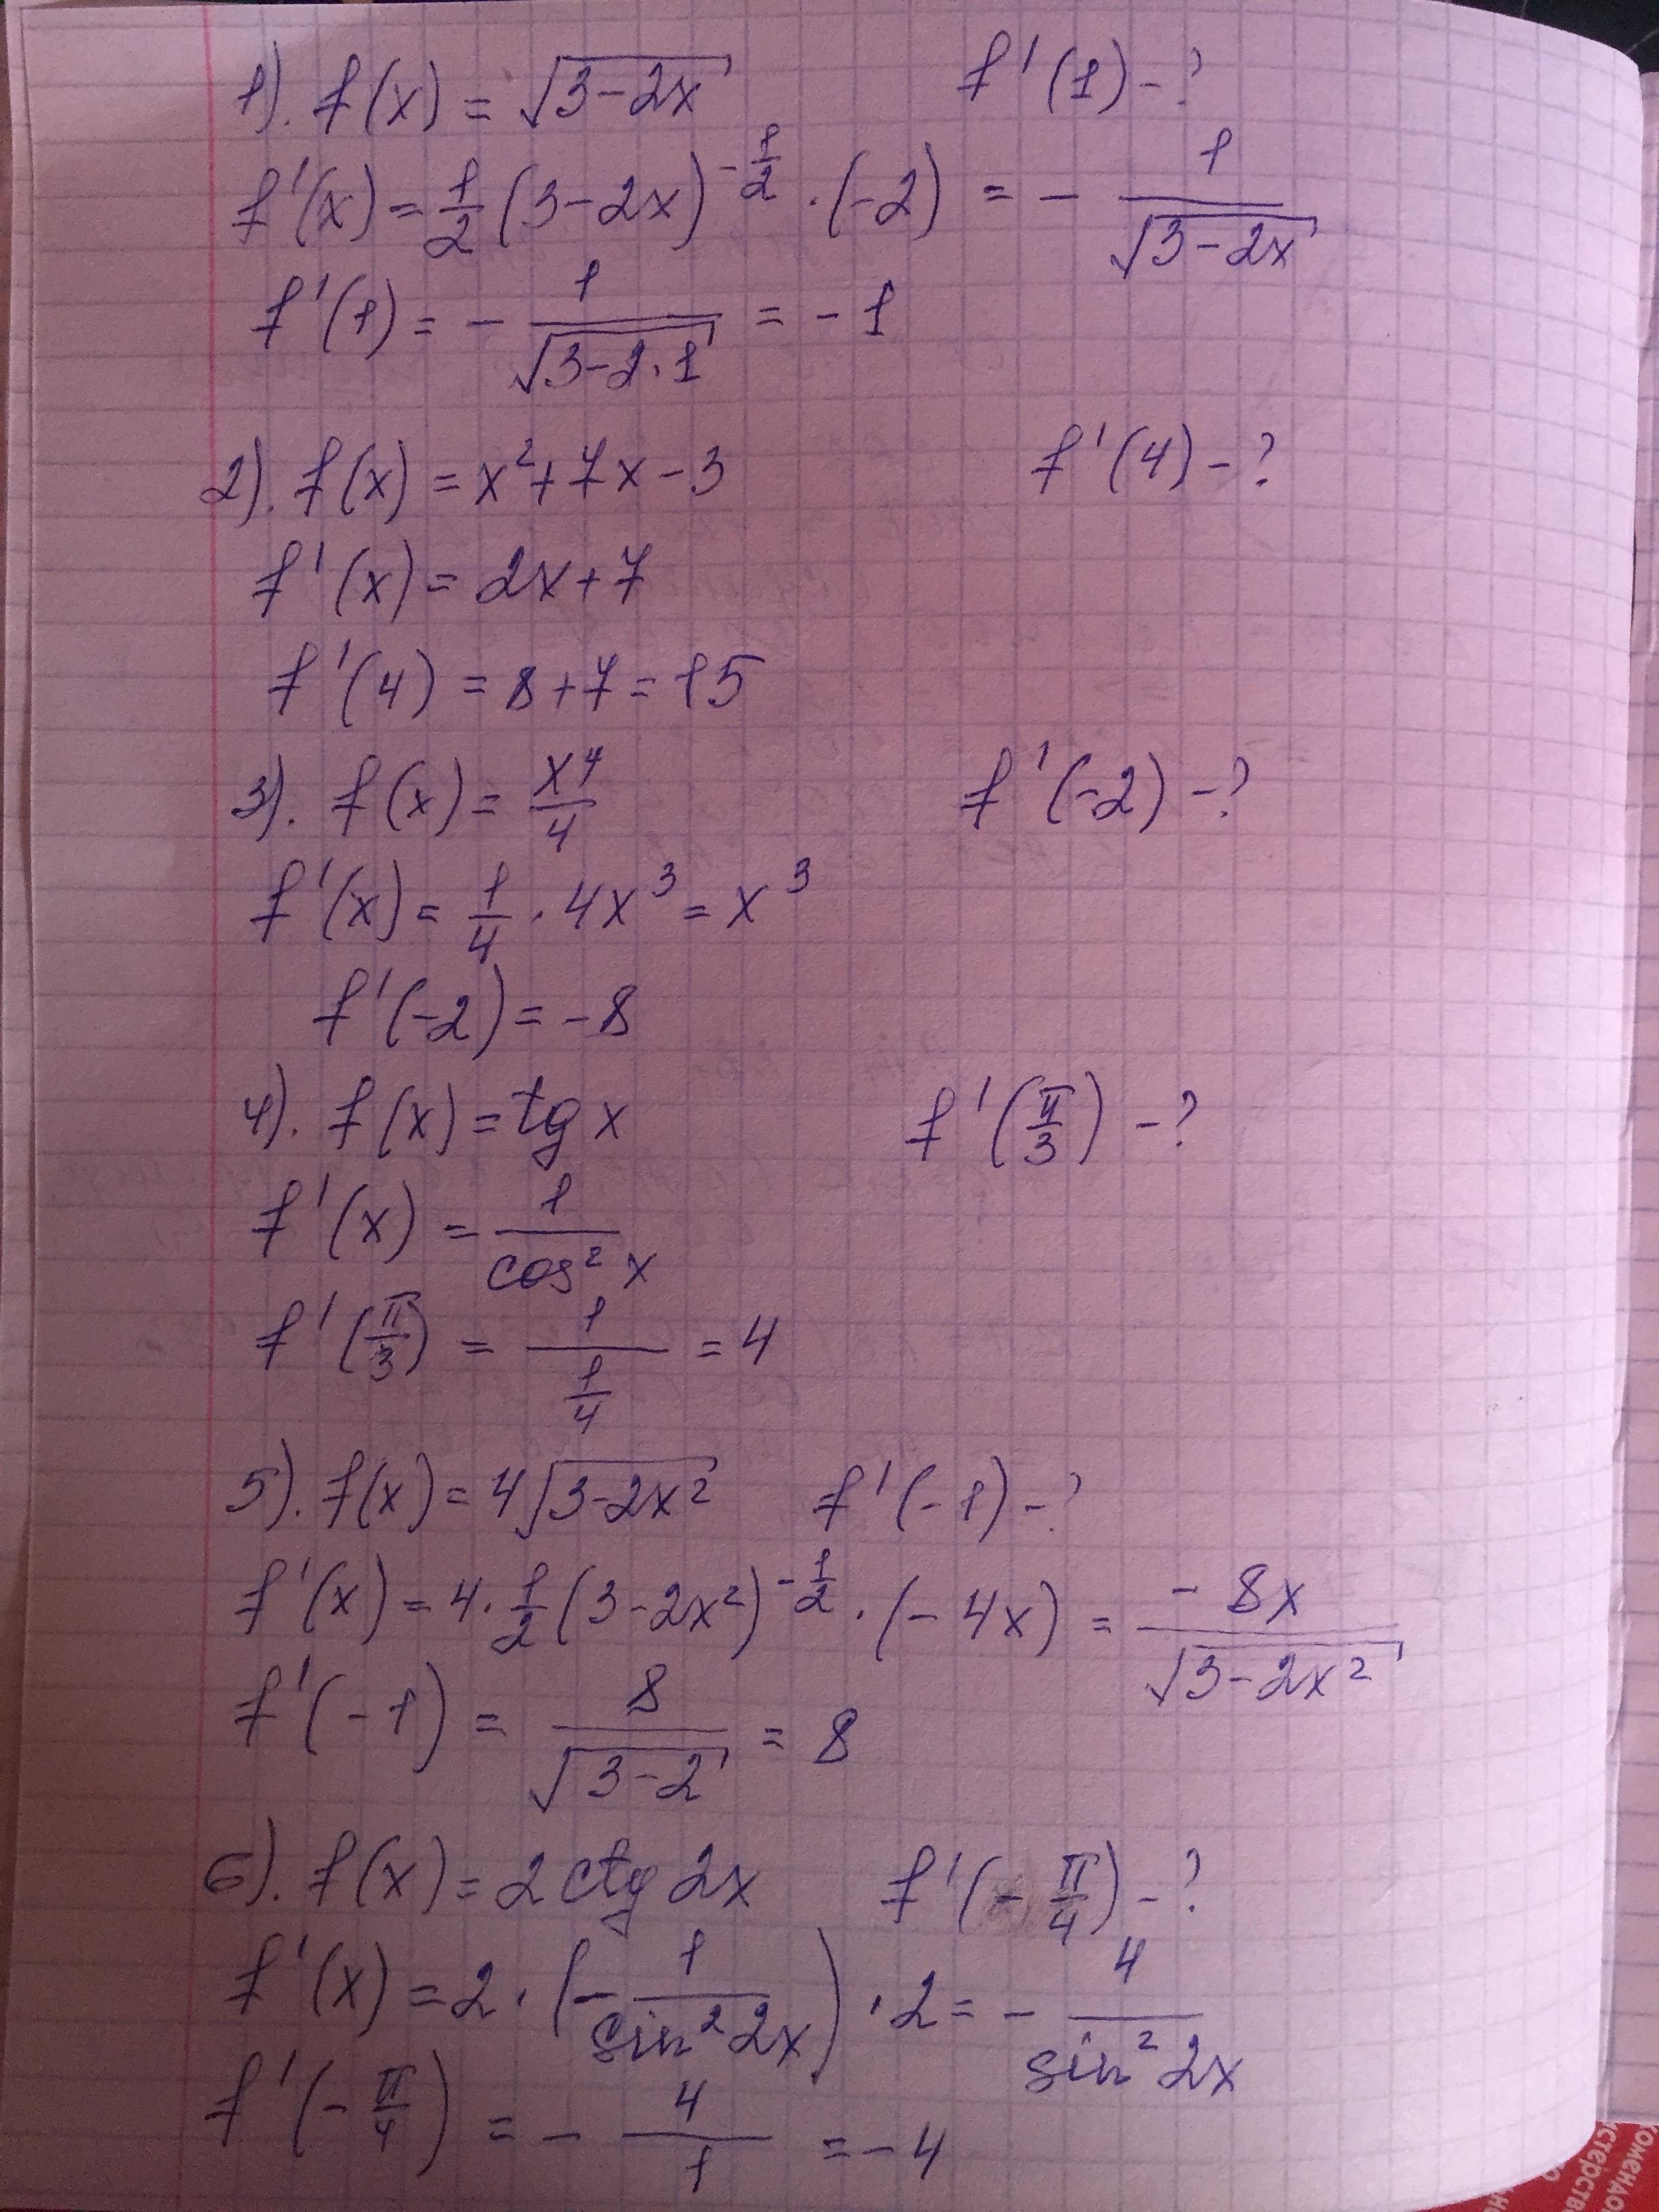 1). f(x) = √(3-2x)  f'(1) - ?
f'(x) = 1/2 (3-2x)^(-1/2) · (-2) = - 1/√(3-2x)
f'(1) = - 1/√(3-2·1) = - 1
2). f(x) = x² + 7x - 3  f'(4) - ?
f'(x) = 2x + 7
f'(4) = 8 + 7 = 15
3). f(x) = x⁴/4  f'(-2) - ?
f'(x) = 1/4 · 4x³ = x³
f'(-2) = -8
4). f(x) = tg x  f'(π/3) - ?
f'(x) = 1/cos² x
f'(π/3) = 1/(1/4) = 4
5). f(x) = 4√(3-2x²)  f'(-1) - ?
f'(x) = 4 · 1/2 (3-2x²)^(-1/2) · (-4x) = -8x/√(3-2x²)
f'(-1) = 8/√(3-2) = 8
6). f(x) = 2 ctg 2x  f'(-π/4) - ?
f'(x) = 2 · (- 1/sin² 2x) · 2 = - 4/sin² 2x
f'(-π/4) = - 4/1 = - 4